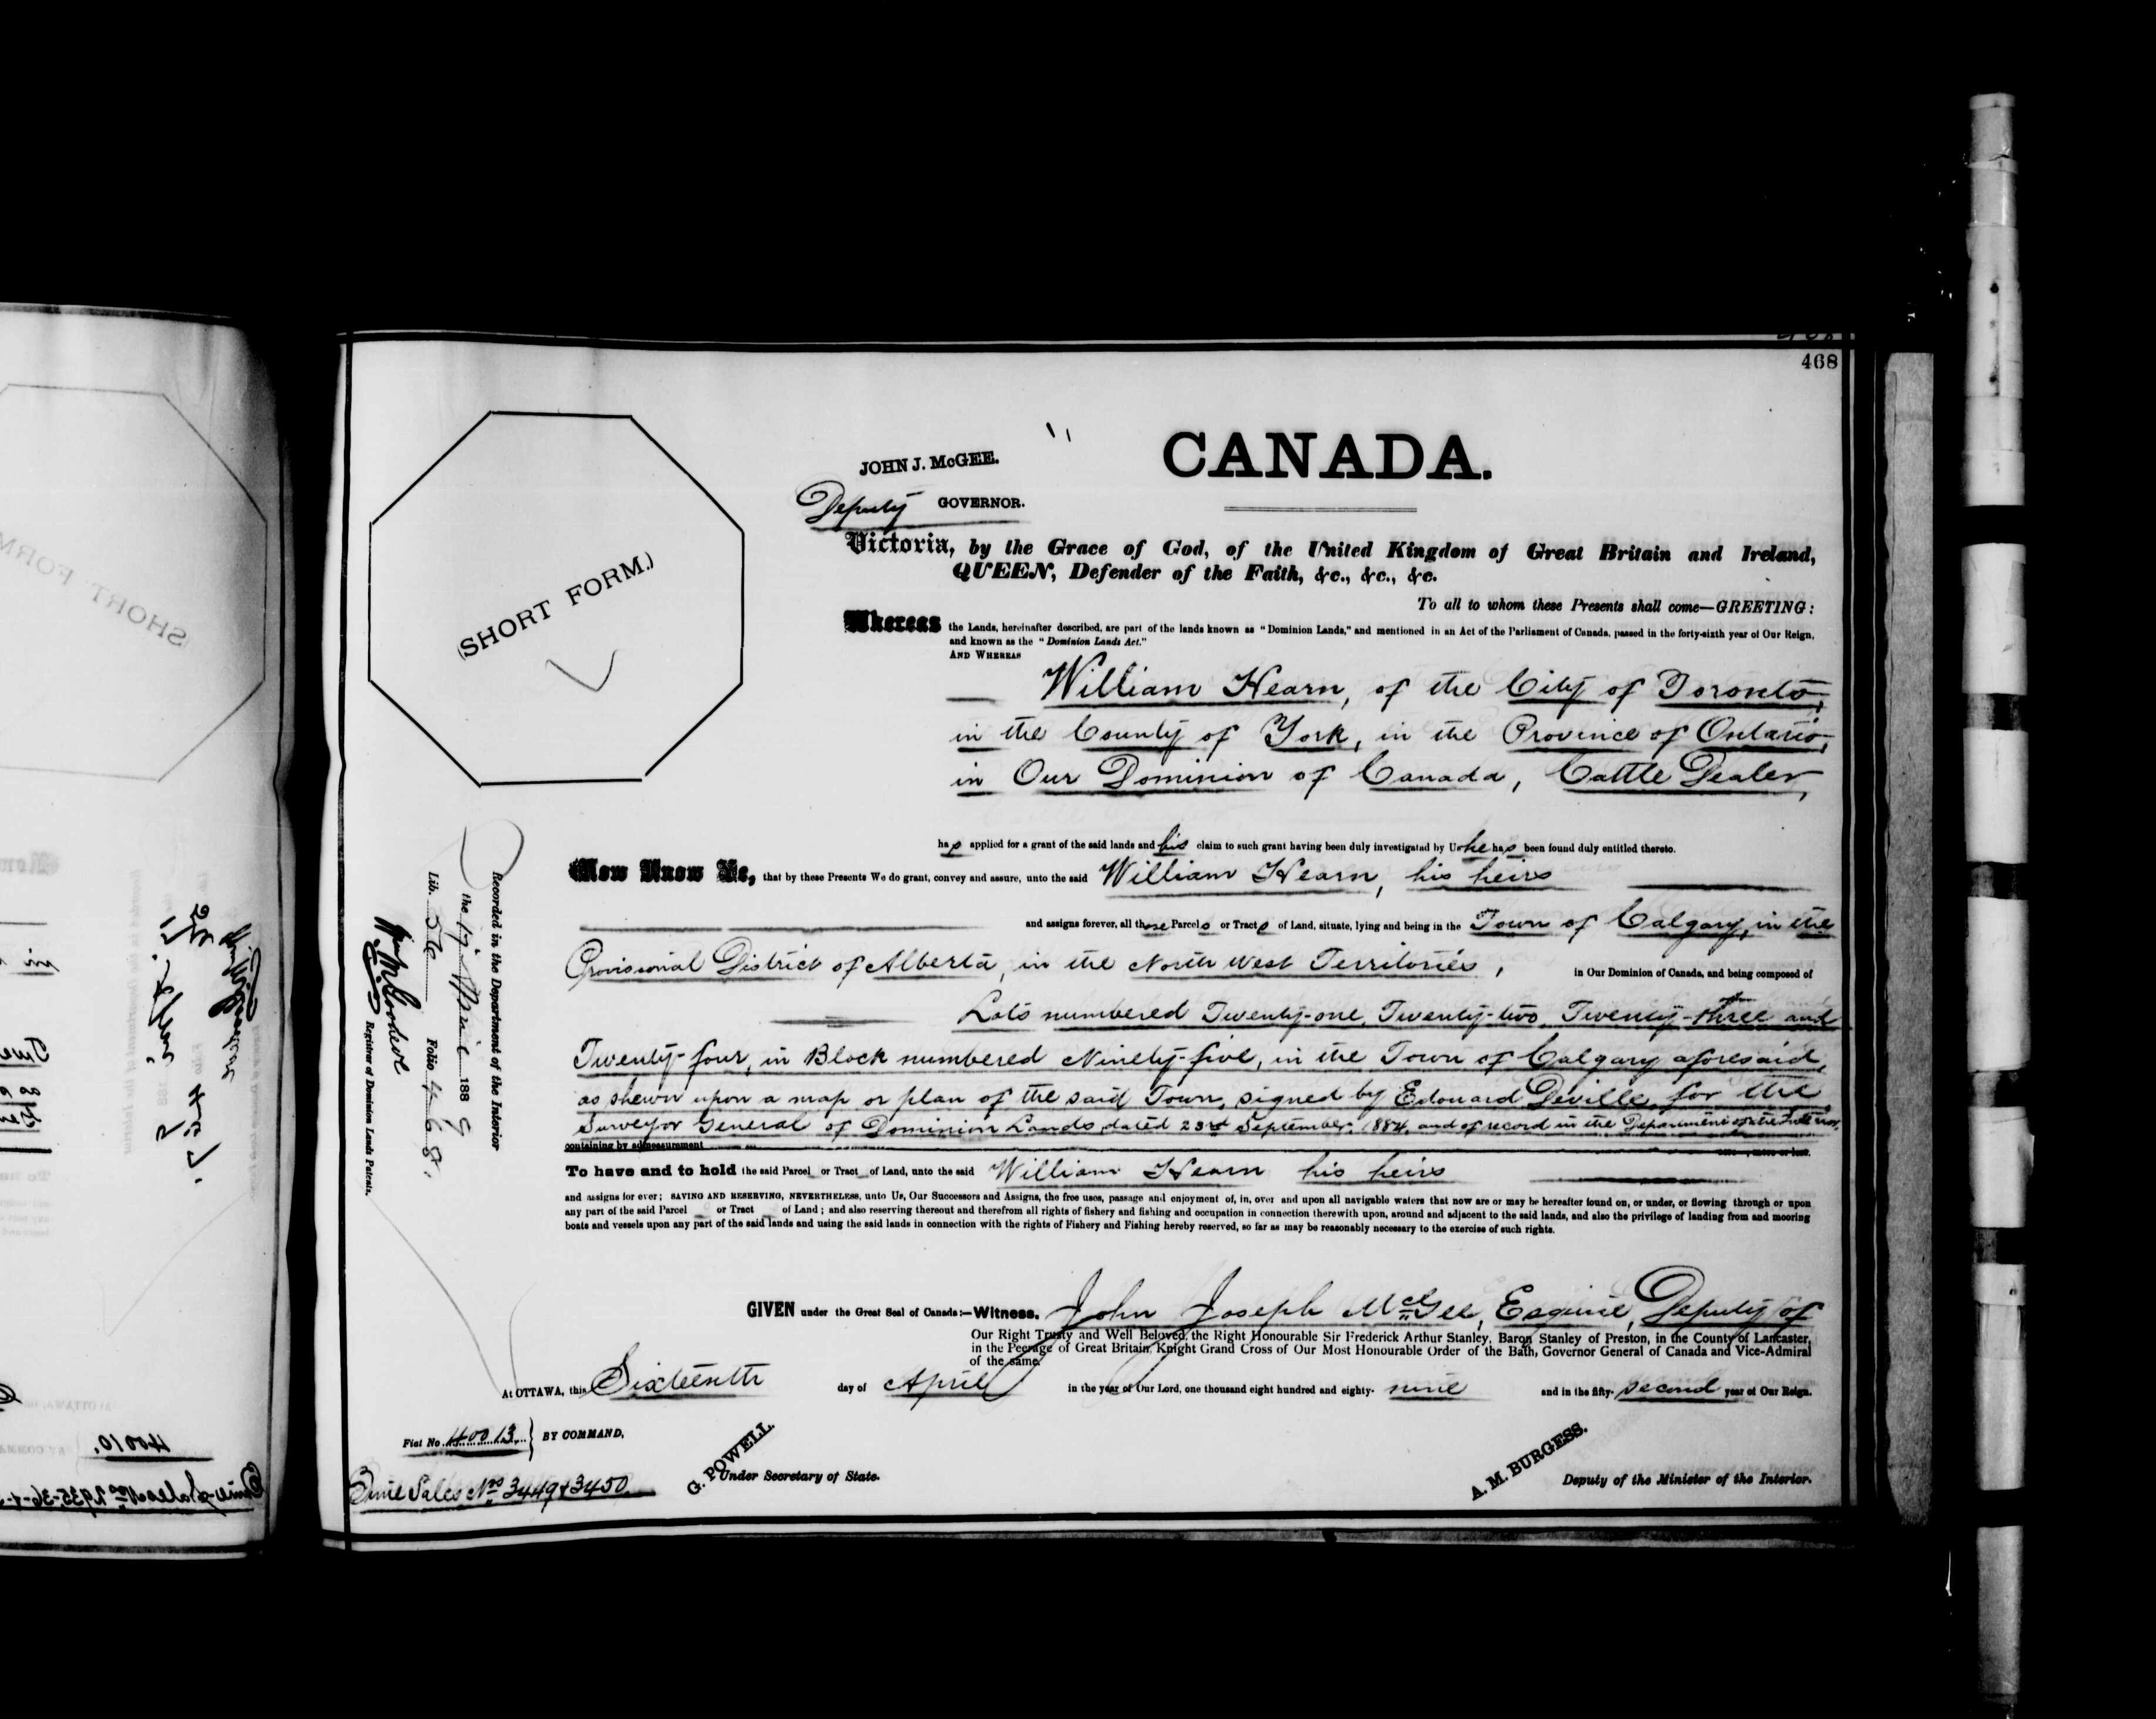 468
CANADA.
JOHN J. McGEE.
Deputy GOVERNOR.
(SHORT FORM.)
Victoria, by the Grace of God, of the United Kingdom of Great Britain and Ireland,
QUEEN, Defender of the Faith, &c., &c., &c.
To all to whom these Presents shall come—GREETING:
Whereas the Lands, hereinafter described, are part of the lands known as "Dominion Lands," and mentioned in an Act of the Parliament of Canada, passed in the forty-sixth year of Our Reign,
and known as the "Dominion Lands Act."
AND WHEREAS
William Hearn, of the City of Toronto,
in the County of York, in the Province of Ontario,
in Our Dominion of Canada, Cattle Dealer,
has applied for a grant of the said lands and his claim to such grant having been duly investigated by Us he has been found duly entitled thereto.
Now Know Ye, that by these Presents We do grant, convey and assure, unto the said William Hearn, his heirs
and assigns forever, all those Parcels or Tracts of Land, situate, lying and being in the Town of Calgary, in the
Provisional District of Alberta, in the North West Territories, in Our Dominion of Canada, and being composed of
Lots numbered Twenty-one, Twenty-two, Twenty-three and
Twenty-four, in Block numbered Ninety-five, in the Town of Calgary aforesaid,
as shewn upon a map or plan of the said Town, signed by Edouard Deville, for the
Surveyor General of Dominion Lands, dated 23rd September, 1884, and of record in the Department of the Interior,
containing by admeasurement acres, more or less.
To have and to hold the said Parcel or Tract of Land, unto the said William Hearn his heirs
and assigns for ever; SAVING AND RESERVING, NEVERTHELESS, unto Us, Our Successors and Assigns, the free uses, passage and enjoyment of, in, over and upon all navigable waters that now are or may be hereafter found on, or under, or flowing through or upon
any part of the said Parcel or Tract of Land; and also reserving thereout and therefrom all rights of fishery and fishing and occupation in connection therewith upon, around and adjacent to the said lands, and also the privilege of landing from and mooring
boats and vessels upon any part of the said lands and using the said lands in connection with the rights of Fishery and Fishing hereby reserved, so far as may be reasonably necessary to the exercise of such rights.
GIVEN under the Great Seal of Canada:—Witness, John Joseph McGee, Esquire, Deputy of
Our Right Trusty and Well Beloved, the Right Honourable Sir Frederick Arthur Stanley, Baron Stanley of Preston, in the County of Lancaster,
in the Peerage of Great Britain, Knight Grand Cross of Our Most Honourable Order of the Bath, Governor General of Canada and Vice-Admiral
of the same.
At OTTAWA, this Sixteenth day of April in the year of Our Lord, one thousand eight hundred and eighty-nine and in the fifty-second year of Our Reign.
Fiat No. 40013. } BY COMMAND,
G. POWELL.
Under Secretary of State.
A. M. BURGESS.
Deputy of the Minister of the Interior.
Sales Nos 3449 & 3450.
Recorded in the Department of the Interior
the 17 April 1889
Lib. Folio 468.
Registrar of Dominion Lands Patents.
SHORT FORM
40010.